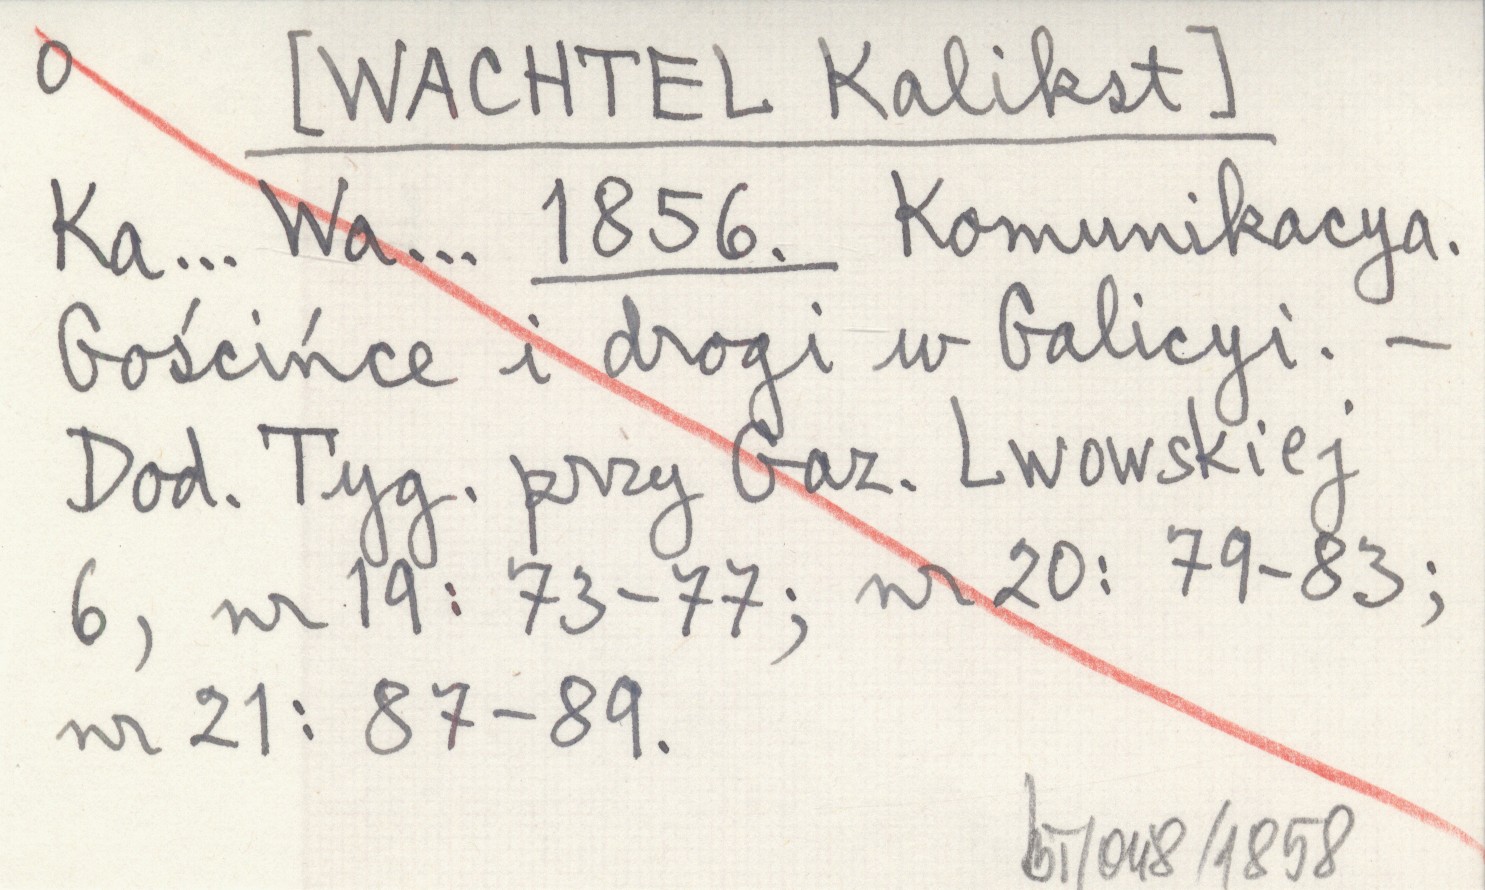 0 [WACHTEL Kalikst]
Ka... Wa... 1856. Komunikacya.
Gościńce i drogi w Galicyi. –
Dod. Tyg. przy Gaz. Lwowskiej
6, nr 19: 73–77; nr 20: 79–83;
nr 21: 87–89.
/048/1858